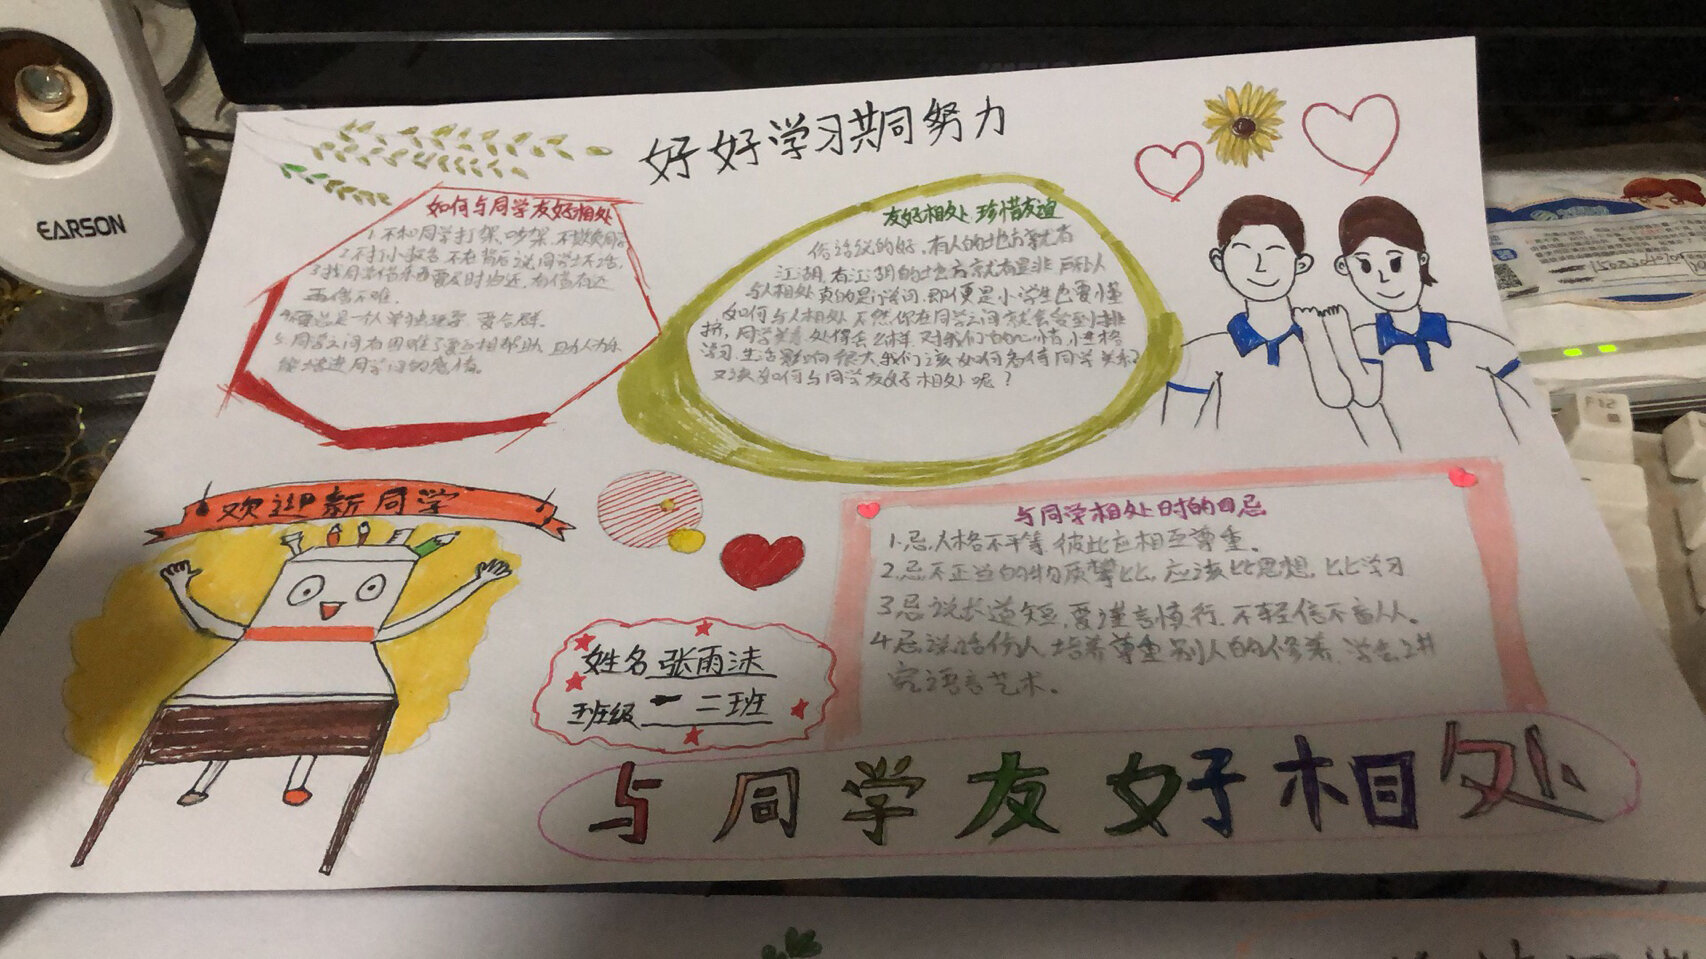 好好学习共同努力
如何与同学友好相处
1.不和同学打架、吵架、不欺负同学
2.不打小报告,不在背后说同学坏话,
3.找同学借东西要及时归还,有借有还
再借不难.
要合群.
5.同学之间有困难了要互相帮助,
能增进同学间的感情。
友好相处 珍惜友谊
俗话说的好,有人的地方就有
江湖,有江湖的地方就有是非
与人相处真的是门学问,即便是小学生也要懂
如何与人相处,不然你在同学之间就会受到排
挤,同学关系处得会怎样,对我们的心情,性格
学习,生活影响很大,我们该如何看待同学关系?
又该如何与同学友好相处呢?
欢迎新同学
与同学相处时的四忌
1.忌人格不平等,彼此应相互尊重。
2.忌不正当的物质攀比,应该比思想,比学习
3.忌说长道短,要谨言慎行,不轻信不盲从。
4.忌说话伤人,培养尊重别人的修养,学会讲
究语言艺术。
姓名 张雨沫
班级 一 二班
与同学友好相处
EARSON
F12